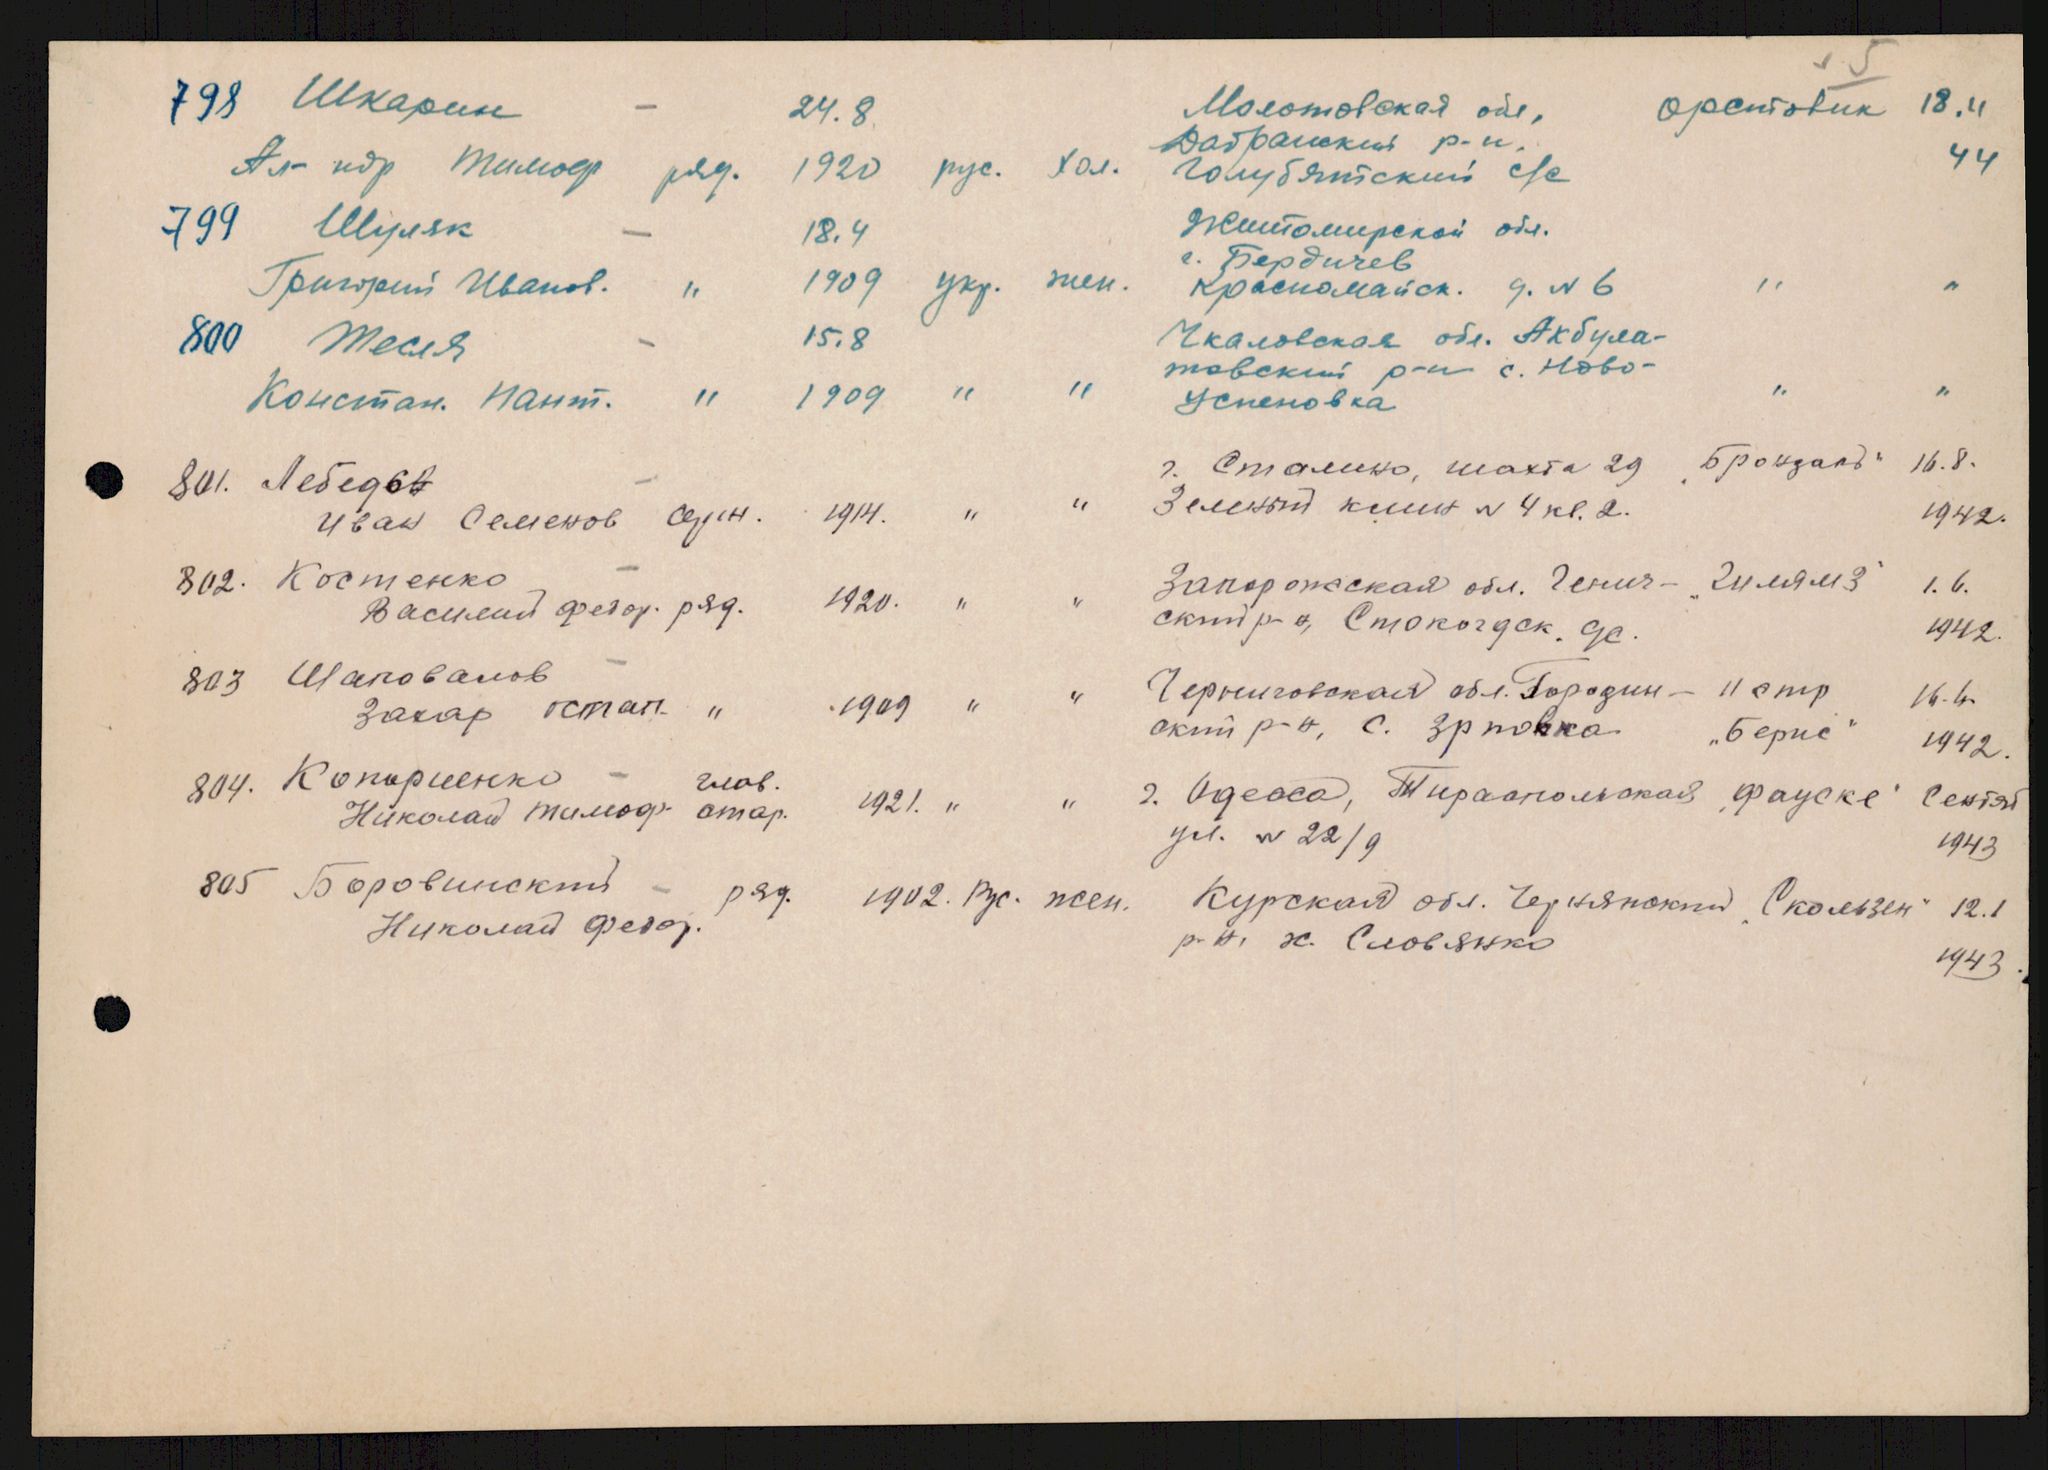 5
798 Шкарин — 24.8. Молотовская обл, орстовик 18.4
Ал-ндр Тимоф ряд. 1920 рус. хол. Добрянский р-н. 44
Голубятский с/с
799 Шуляк — 18.4 Житомирской обл.
г. Бердичев
Григорий Иванов. " 1909 укр. жен. Красномайск. д. № 6 " "
800 Тесля — 15.8 Чкаловская обл. Акбула-
товский р-н с. Ново-
Констан. Пант. " 1909 " " Успеновка " "
801. Лебедев — г. Сталино, шахта 29 „Бронзапь" 16.8.
Иван Семенов серж. 1914. " " Зеленый клин № 4 кв. 2. 1942.
802. Костенко — Запорожская обл. Генич- „Гилямз" 1. 6.
Василий Федор. ряд. 1920. " " ский р-н, 1942.
803 Шаповалов — Черниговская обл. Городин- 11 стр 16.6.
Захар Остап. " 1909 " " ский р-н, с. „Берис" 1942.
804. — глав. г. Одесса, Тираспольская „Фауске" Сентяб
Николай Тимоф. стар. 1921. " " ул. № 22/9 1943
805 Боровинский — ряд. 1902. Рус. жен. Курская обл. Чернянский „Скользен" 12.1
Николай Федор. р-н, х. Словянко 1943.